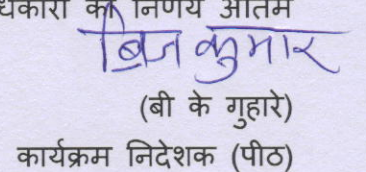 का निर्णय अंतिम
ब्रिज कुमार
(बी के गुहारे)
कार्यक्रम निदेशक (पीठ)